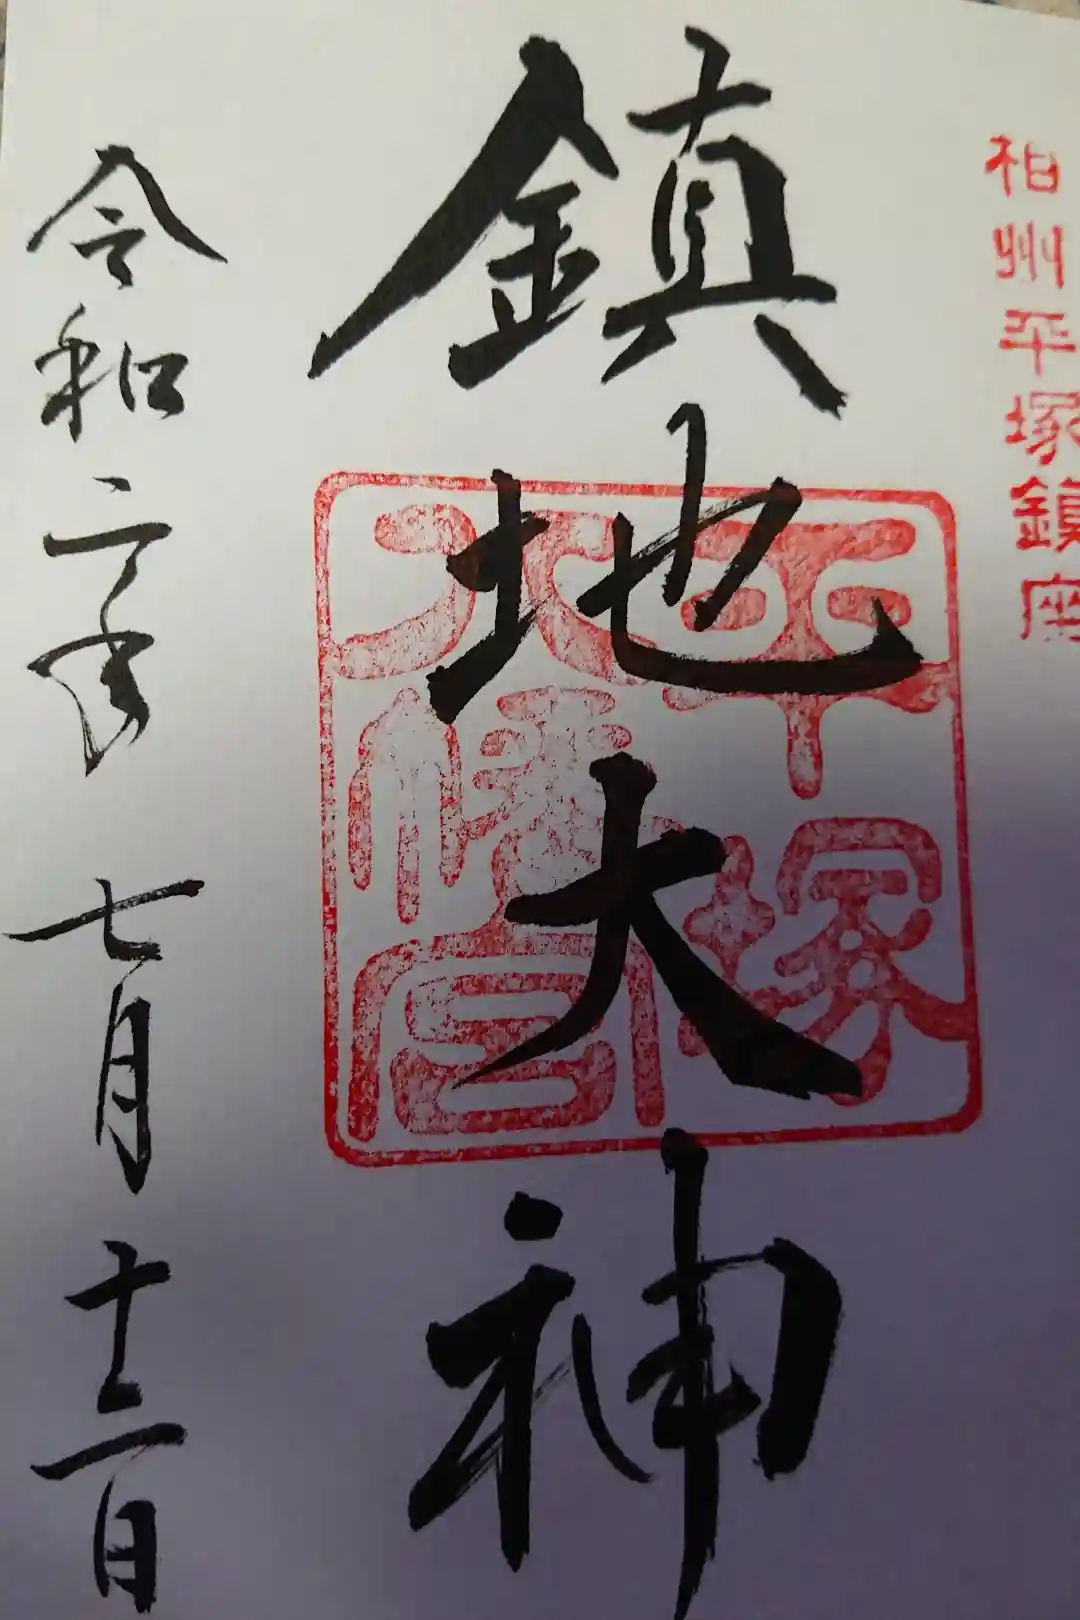 相州平塚鎮座
鎮地大神
平塚
八幡宮
令和二年 七月十二日